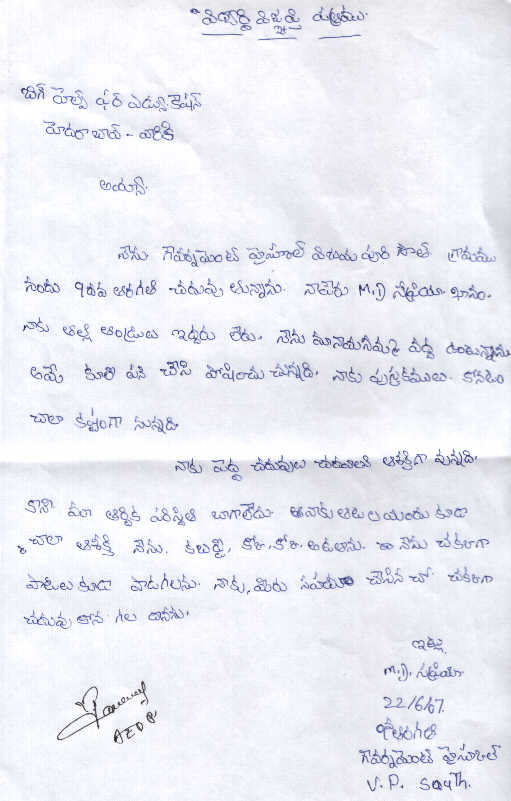 విద్యార్థి విజ్ఞప్తి పత్రము.
బిగ్ హెల్ప్ ఫర్ ఎడ్యుకేషన్
హైదరాబాద్ - వారికి
అయ్యా.
నేను గౌవర్నమెంట్ హైస్కూల్ విజయ పురి సౌత్ గ్రామము
నందు 9దవ తరగతి చదువు తున్నాను. నాపేరు M.D
నాకు తల్లి తండ్రులు ఇద్దరు లేరు. నేను మానాయనమ్మ వద్ద ఉంటున్నాను
ఆమె కూలి పని చేసి పోషించు చున్నది. నాకు పుస్తకములు. కొనడం
చాలా కష్టంగా నున్నది.
నాకు పెద్ద చదువులు చదవాలని ఆశక్తిగా వున్నది.
కాని మా ఆర్థిక పరిస్థితి బాగాలేదు. ఆటల యందు కూడా
చాలా ఆశక్తి నేను. కబడ్డి, కోకో. ఆడతాను. నేను చక్కగా
పాటలు కూడా పాడగలను. నాకు, మీరు సహయం చేసిన చో చక్కగా
చదువు కోన గల దానను.
ఇట్లు
M.D.
22/6/67.
9తరగతి
గౌవర్నమెంట్ హైస్కూల్
V.P. South.